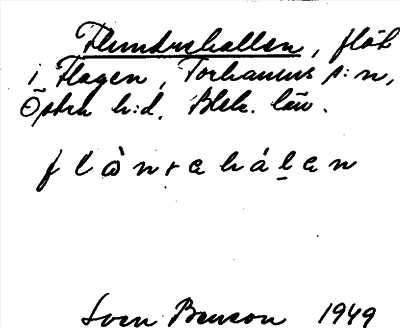 Flundrehallen, flåt
i Hagen, Torhamns s:n,
Östra h:d, Blek. län.
flånrehálen
Sven Benson 1949